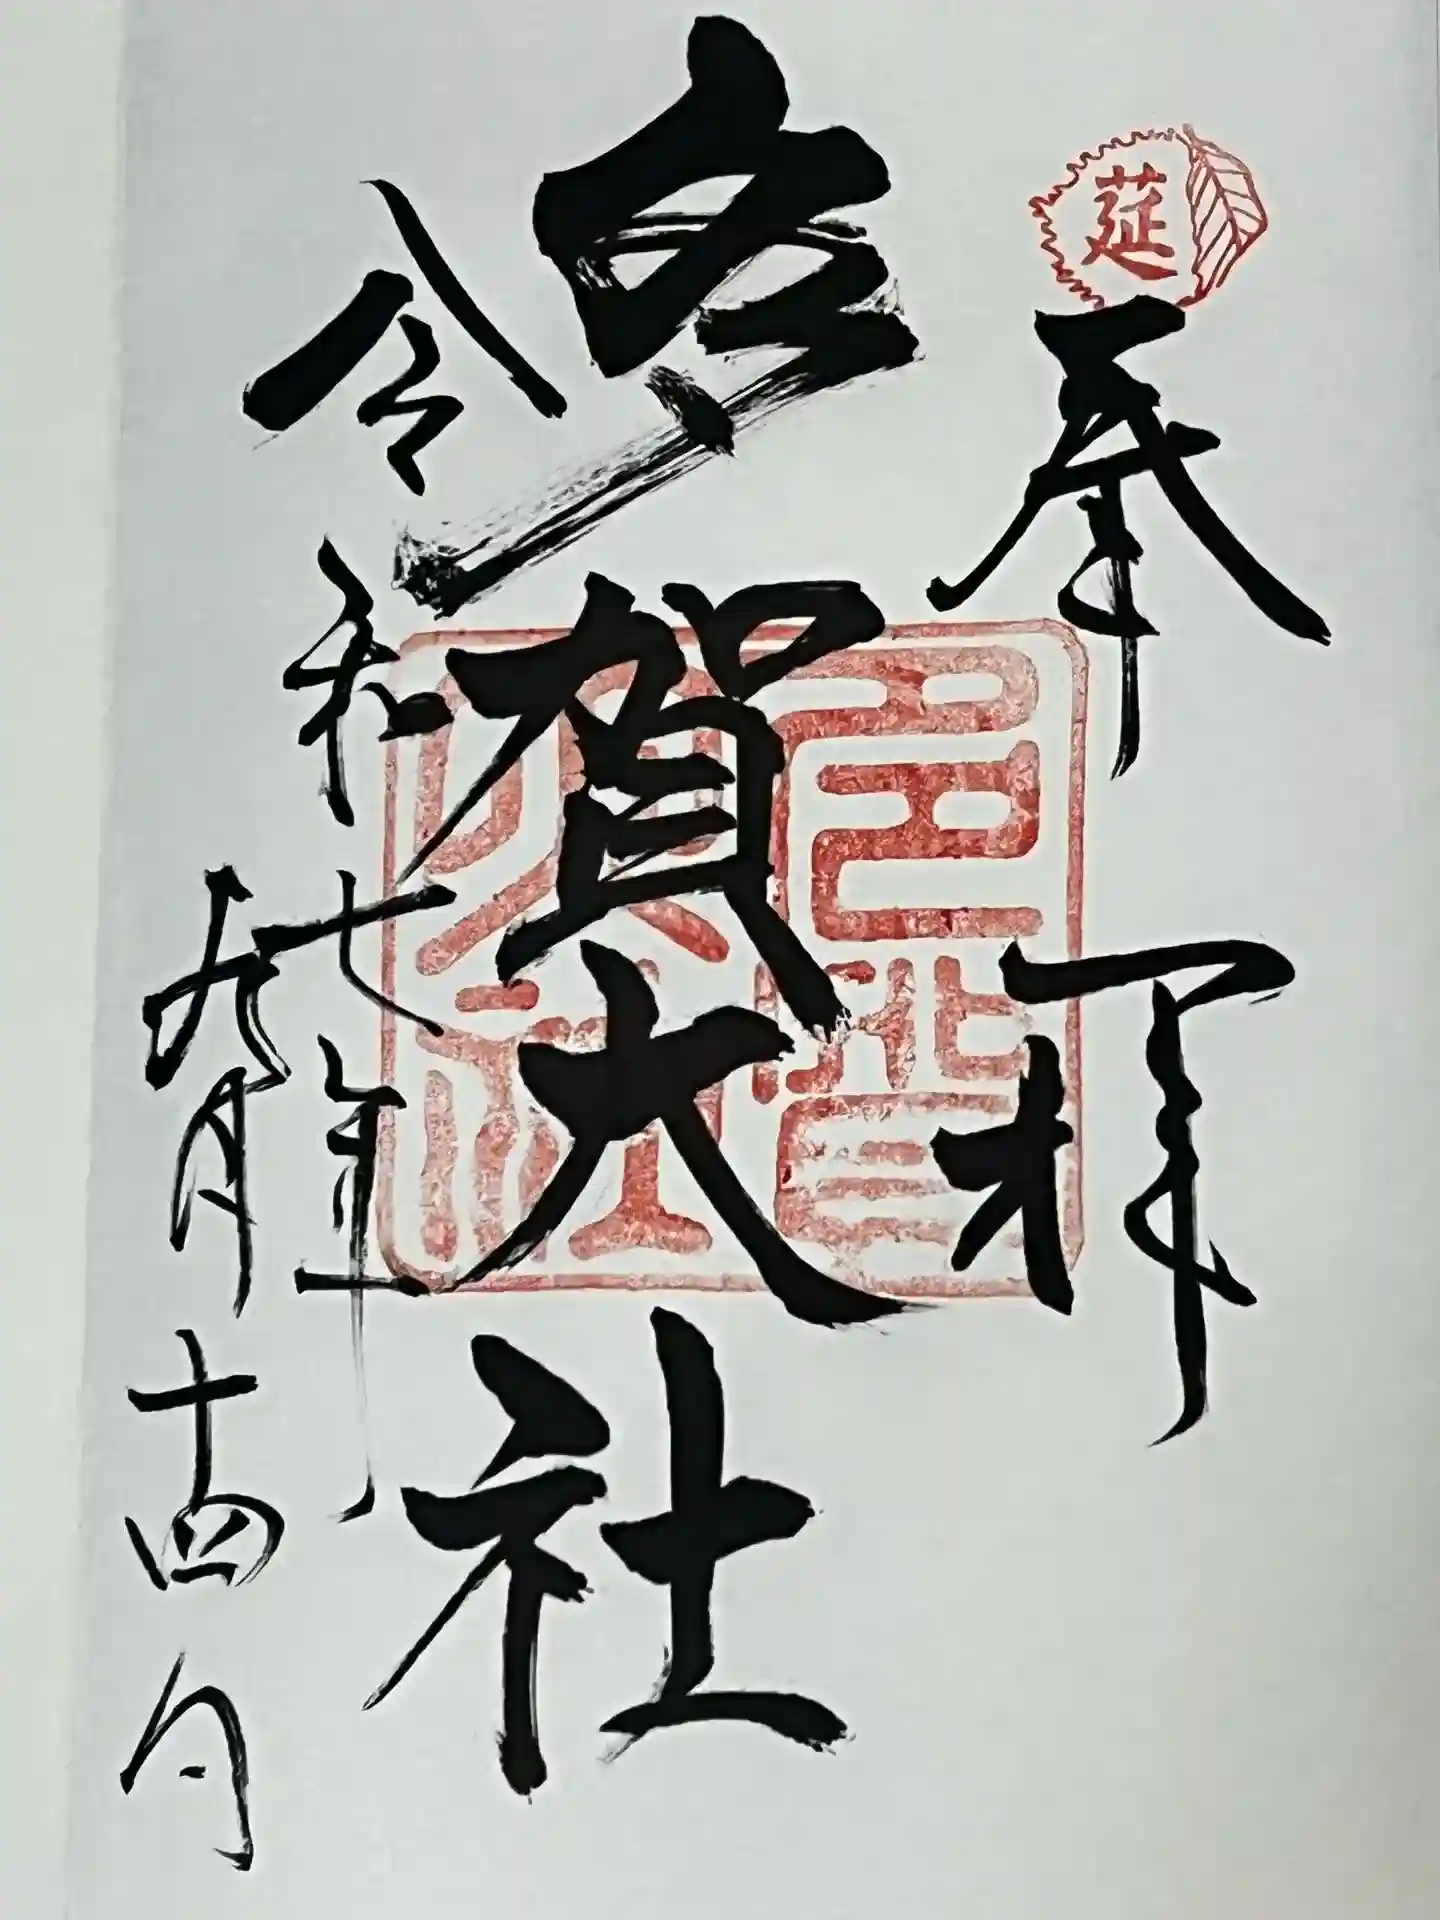 莚
奉拝
多賀大社
令和七年
九月十四日
多賀
大社